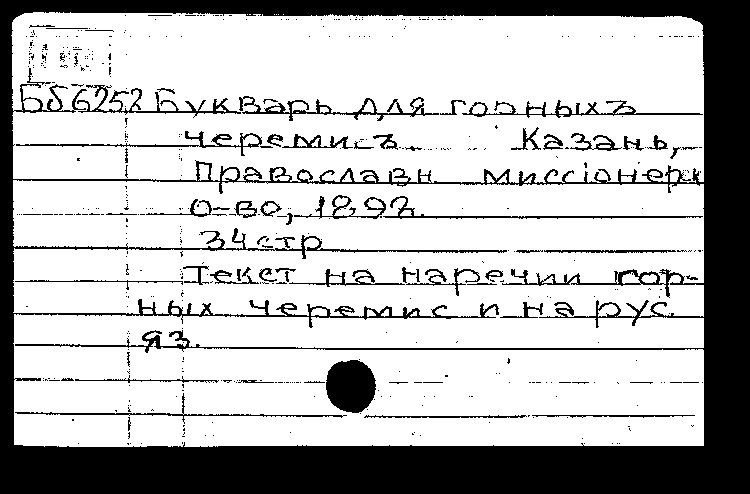 Бб6252 Букварь для горныхъ
черемисъ. Казань,
Православн миссіонерск
о-во, 1892.
34 стр
Текст на наречии гор-
ных черемис и на рус
яз.